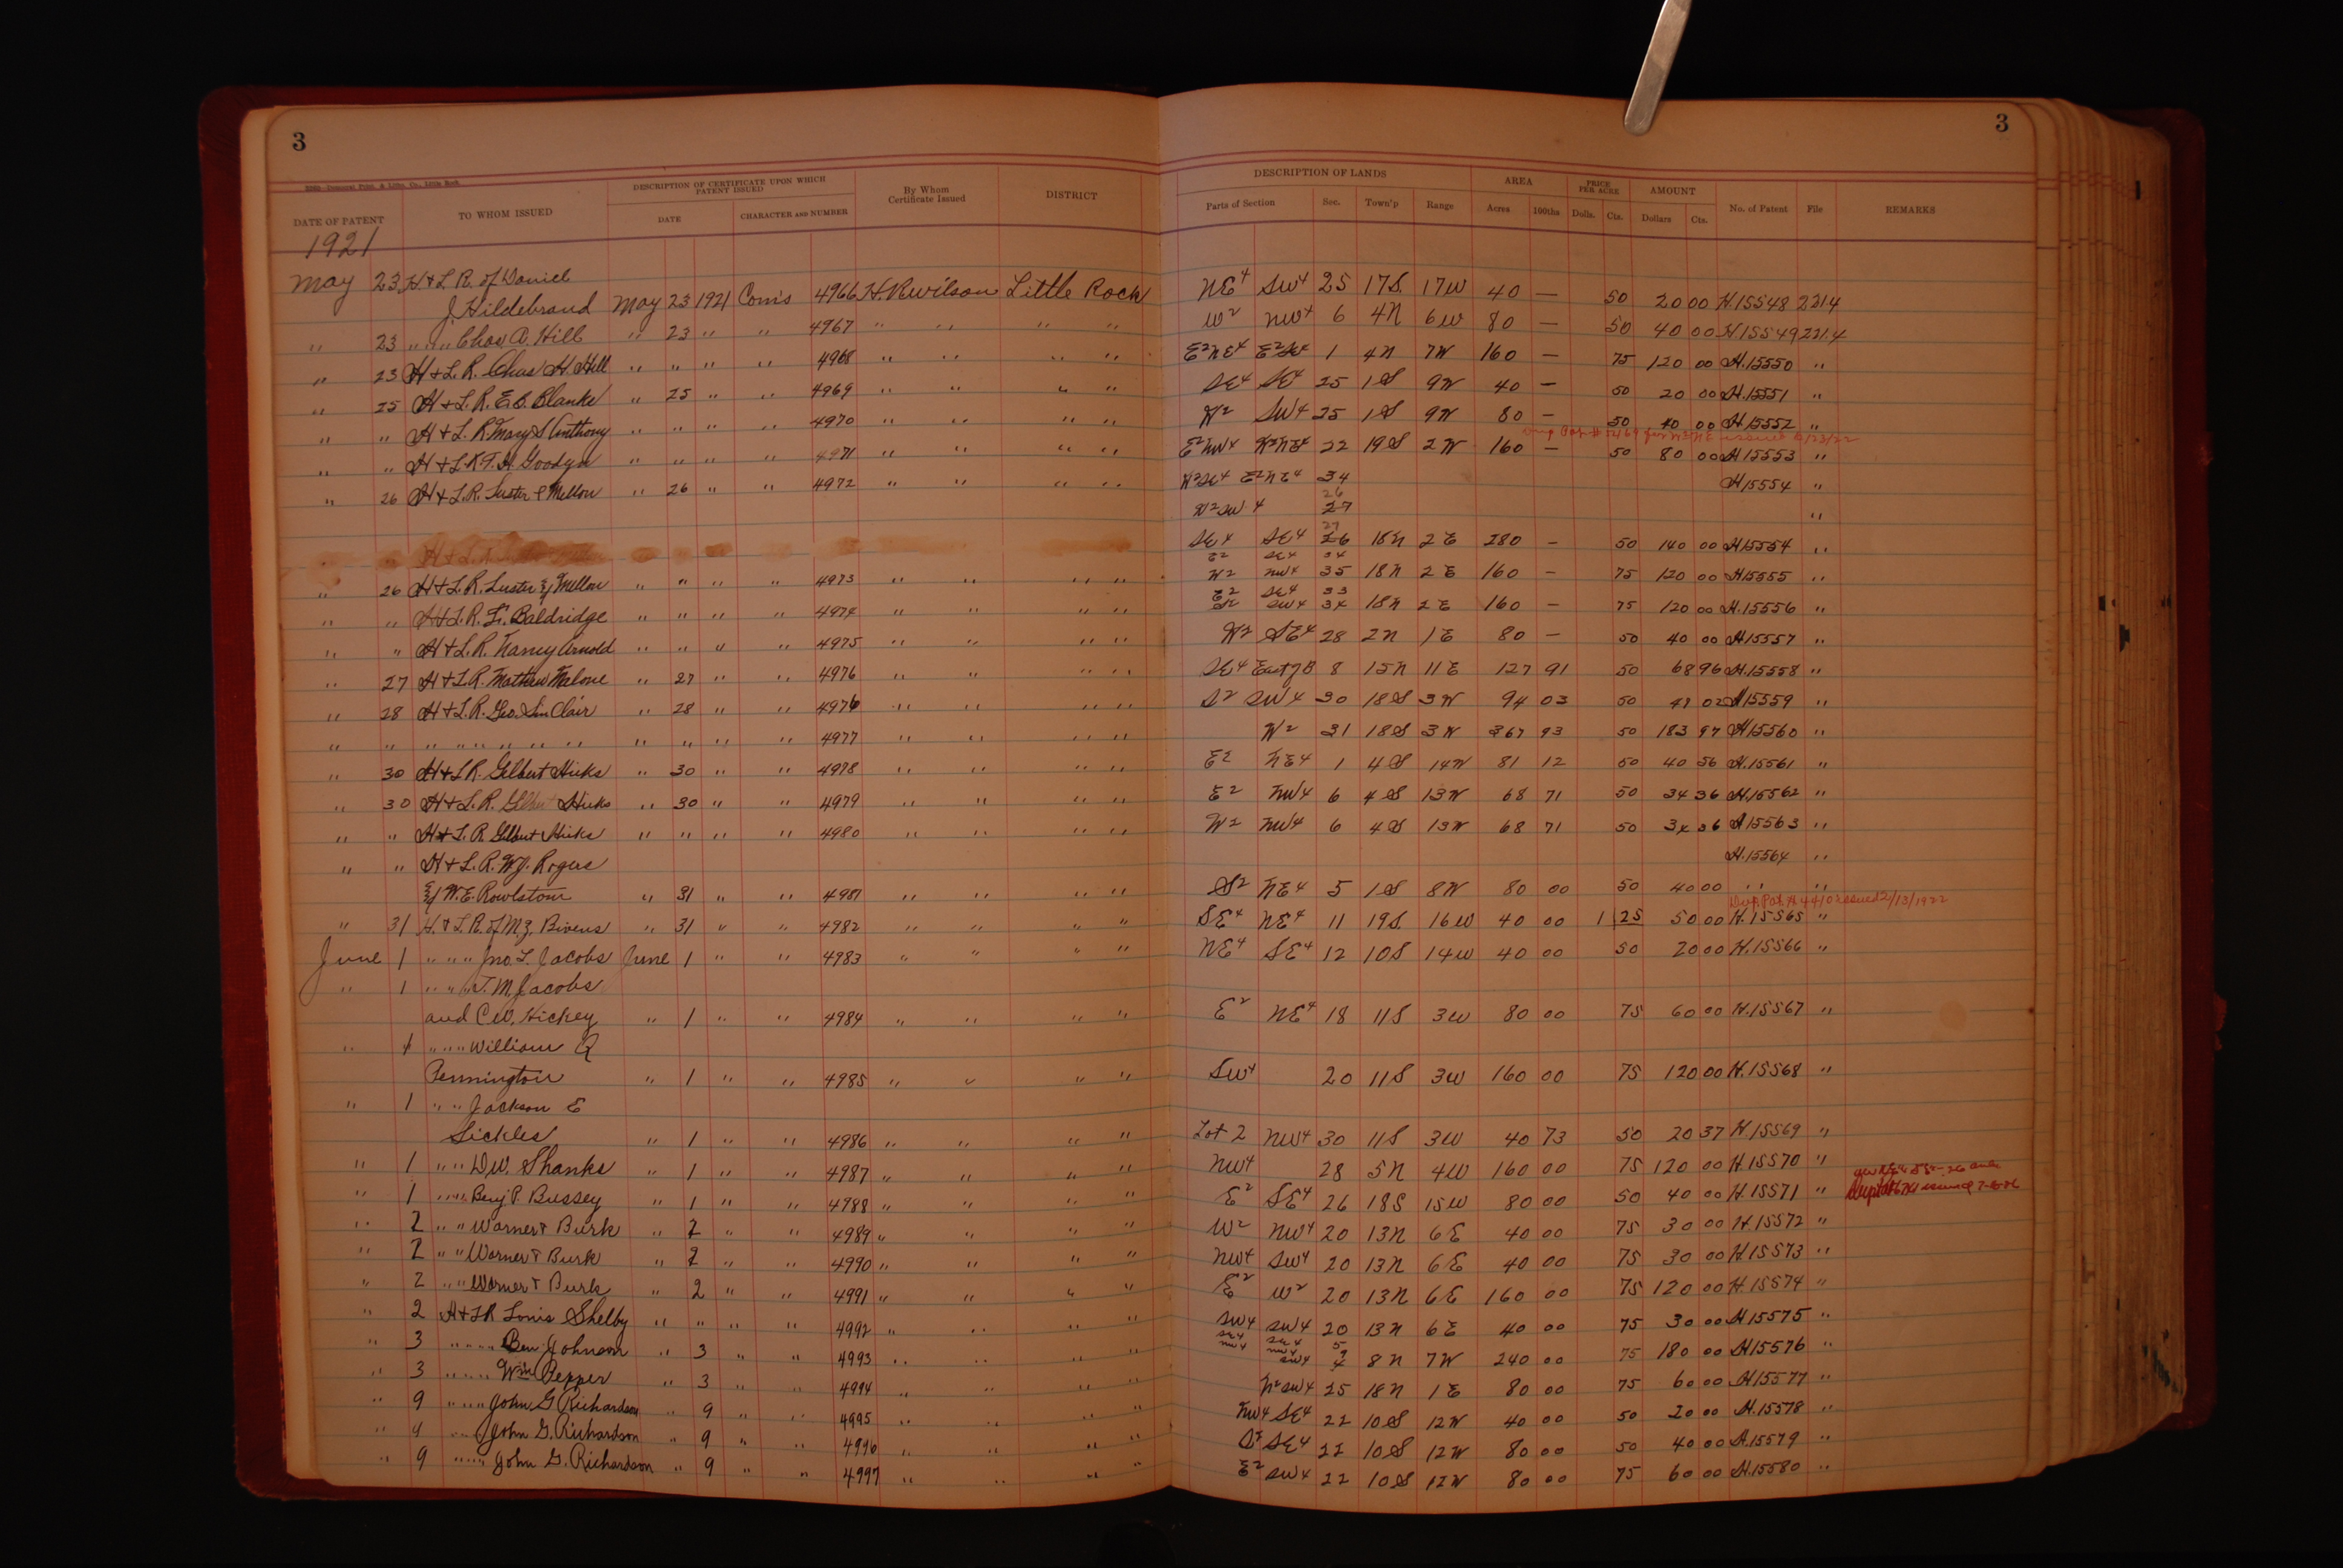 3
3
DESCRIPTION OF CERTIFICATE UPON WHICH PATENT ISSUED
DATE OF PATENT TO WHOM ISSUED DATE CHARACTER AND NUMBER By Whom Certificate Issued DISTRICT
DESCRIPTION OF LANDS AREA PRICE PER ACRE AMOUNT
Parts of Section Sec. Town'p Range Acres 100ths Dolls. Cts. Dollars Cts. No. of Patent File REMARKS
1921
May 23 H & L R. of Daniel
J Hildebrand May 23 1921 Coms 4966 H.R. Wilson Little Rock NE4 SW4 25 17S 17W 40 — 50 20 00 H.15548 2214
" 23 " " " Chas. A. Hill " 23 " " 4967 " " " " W2 NW4 6 4N 6W 80 — 50 40 00 H15549 2214
" 23 H & L. R. Chas H. Hill " " " " 4968 " " " " E2NE4 E2SE4 1 4N 7W 160 — 75 120 00 H.15550 "
" 25 H & L. R. E.B. Blanks " 25 " " 4969 " " " " SE4 SE4 25 1S 9W 40 — 50 20 00 H.15551 "
" " H & L. R. Mary S Anthony " " " " 4970 " " " " W2 SW4 25 1S 9W 80 — 50 40 00 H.15552 "
" " H & L R T. H. Goodyn " " " " 4971 " " " " E2NW4 W2NE4 22 19S 2W 160 — 50 80 00 H 15553 "
" 26 H & L. R. Luster & Mellon " 26 " " 4972 " " " " W2SE4 E2NE4 34 H15554 "
26
W2SW4 27 "
27
SE4 SE4 26 18N 2E 280 — 50 140 00 H15554 "
E2 SE4 34
" 26 H & L. R. Luster & Mellon " " " " 4973 " " " " W2 NW4 35 18N 2E 160 — 75 120 00 H15555 "
E2 SE4 33
" " H & L. R. L. Baldridge " " " " 4974 " " " " SW4 34 18N 2E 160 — 75 120 00 H.15556 "
" " H & L. R. Nancy Arnold " " " " 4975 " " " " W2 SE4 28 2N 1E 80 — 50 40 00 H15557 "
" 27 H & L R. Mathew Malone " 27 " " 4976 " " " " SE4 East of B 8 15N 11E 127 91 50 68 96 H.15558 "
" 28 H & L. R. Geo. Sin Clair " 28 " " 4976 " " " " S2 SW4 30 18S 3W 94 03 50 47 02 H15559 "
" " " " " " " " " " " " " 4977 " " " " W2 31 18S 3W 367 93 50 183 97 H15560 "
" 30 H & L R. Gilbert Hicks " 30 " " 4978 " " " " E2 NE4 1 4S 14W 81 12 50 40 56 H.15561 "
" 30 H & L. R. Gilbert Hicks " 30 " " 4979 " " " " E2 NW4 6 4S 13W 68 71 50 34 36 H.15562 "
" " H & L. R. Gilbert Hicks " " " " 4980 " " " " W2 NW4 6 4S 13W 68 71 50 34 36 H15563 "
" " H & L. R. W.J. Rogers H.15564 "
& W. E. Rowlston " 31 " " 4981 " " " " S2 NE4 5 1S 8W 80 00 50 40 00 " "
Dup. Pat. # 4410 issued 2/13/1922
" 31 H. & L R. of M.Z. Bivens " 31 " " 4982 " " " " SE4 NE4 11 19S. 16W 40 00 1 25 50 00 H.15565 "
June 1 " " " Jno. L. Jacobs June 1 " " 4983 " " " " NE4 SE4 12 10S 14W 40 00 50 20 00 H.15566 "
" 1 " " " T. M. Jacobs
and C.W. Hickey " 1 " " 4984 " " " " E2 NE4 18 11S 3W 80 00 75 60 00 H.15567 "
" 1 " " " William R
Pennington " 1 " " 4985 " " " " SW4 20 11S 3W 160 00 75 120 00 H.15568 "
" 1 " " Jackson E
Sickles " 1 " " 4986 " " " " Lot 2 NW4 30 11S 3W 40 73 50 20 37 H.15569 "
" 1 " " D.W. Shanks " 1 " " 4987 " " " " NW4 28 5N 4W 160 00 75 120 00 H 15570 "
" 1 " " " Benj P. Bussey " 1 " " 4988 " " " " E2 SE4 26 18S 15W 80 00 50 40 00 H.15571 "
" 2 " " Warner & Burk " 2 " " 4989 " " " " W2 NW4 20 13N 6E 40 00 75 30 00 H.15572 "
" 2 " " Warner & Burk " 2 " " 4990 " " " " NW4 SW4 20 13N 6E 40 00 75 30 00 H.15573 "
" 2 " " Warner & Burk " 2 " " 4991 " " " " E2 W2 20 13N 6E 160 00 75 120 00 H.15574 "
" 2 H & L R Louis Shelby " " " " 4992 " " " " SW4 SW4 20 13N 6E 40 00 75 30 00 H 15575 "
" 3 " " " " Ben Johnson " 3 " " 4993 " " " " SW4 4 8N 7W 240 00 75 180 00 H15576 "
" 3 " " " " Wm Pepper " 3 " " 4994 " " " " N2SW4 25 18N 1E 80 00 75 60 00 H15577 "
" 9 " " " " John G Richardson " 9 " " 4995 " " " " NW4 SE4 22 10S 12W 40 00 50 20 00 H.15578 "
" 9 " " " John G. Richardson " 9 " " 4996 " " " " S2 SE4 22 10S 12W 80 00 50 40 00 H.15579 "
" 9 " " " " John G. Richardson " 9 " " 4997 " " " " E2 SW4 22 10S 12W 80 00 75 60 00 H.15580 "